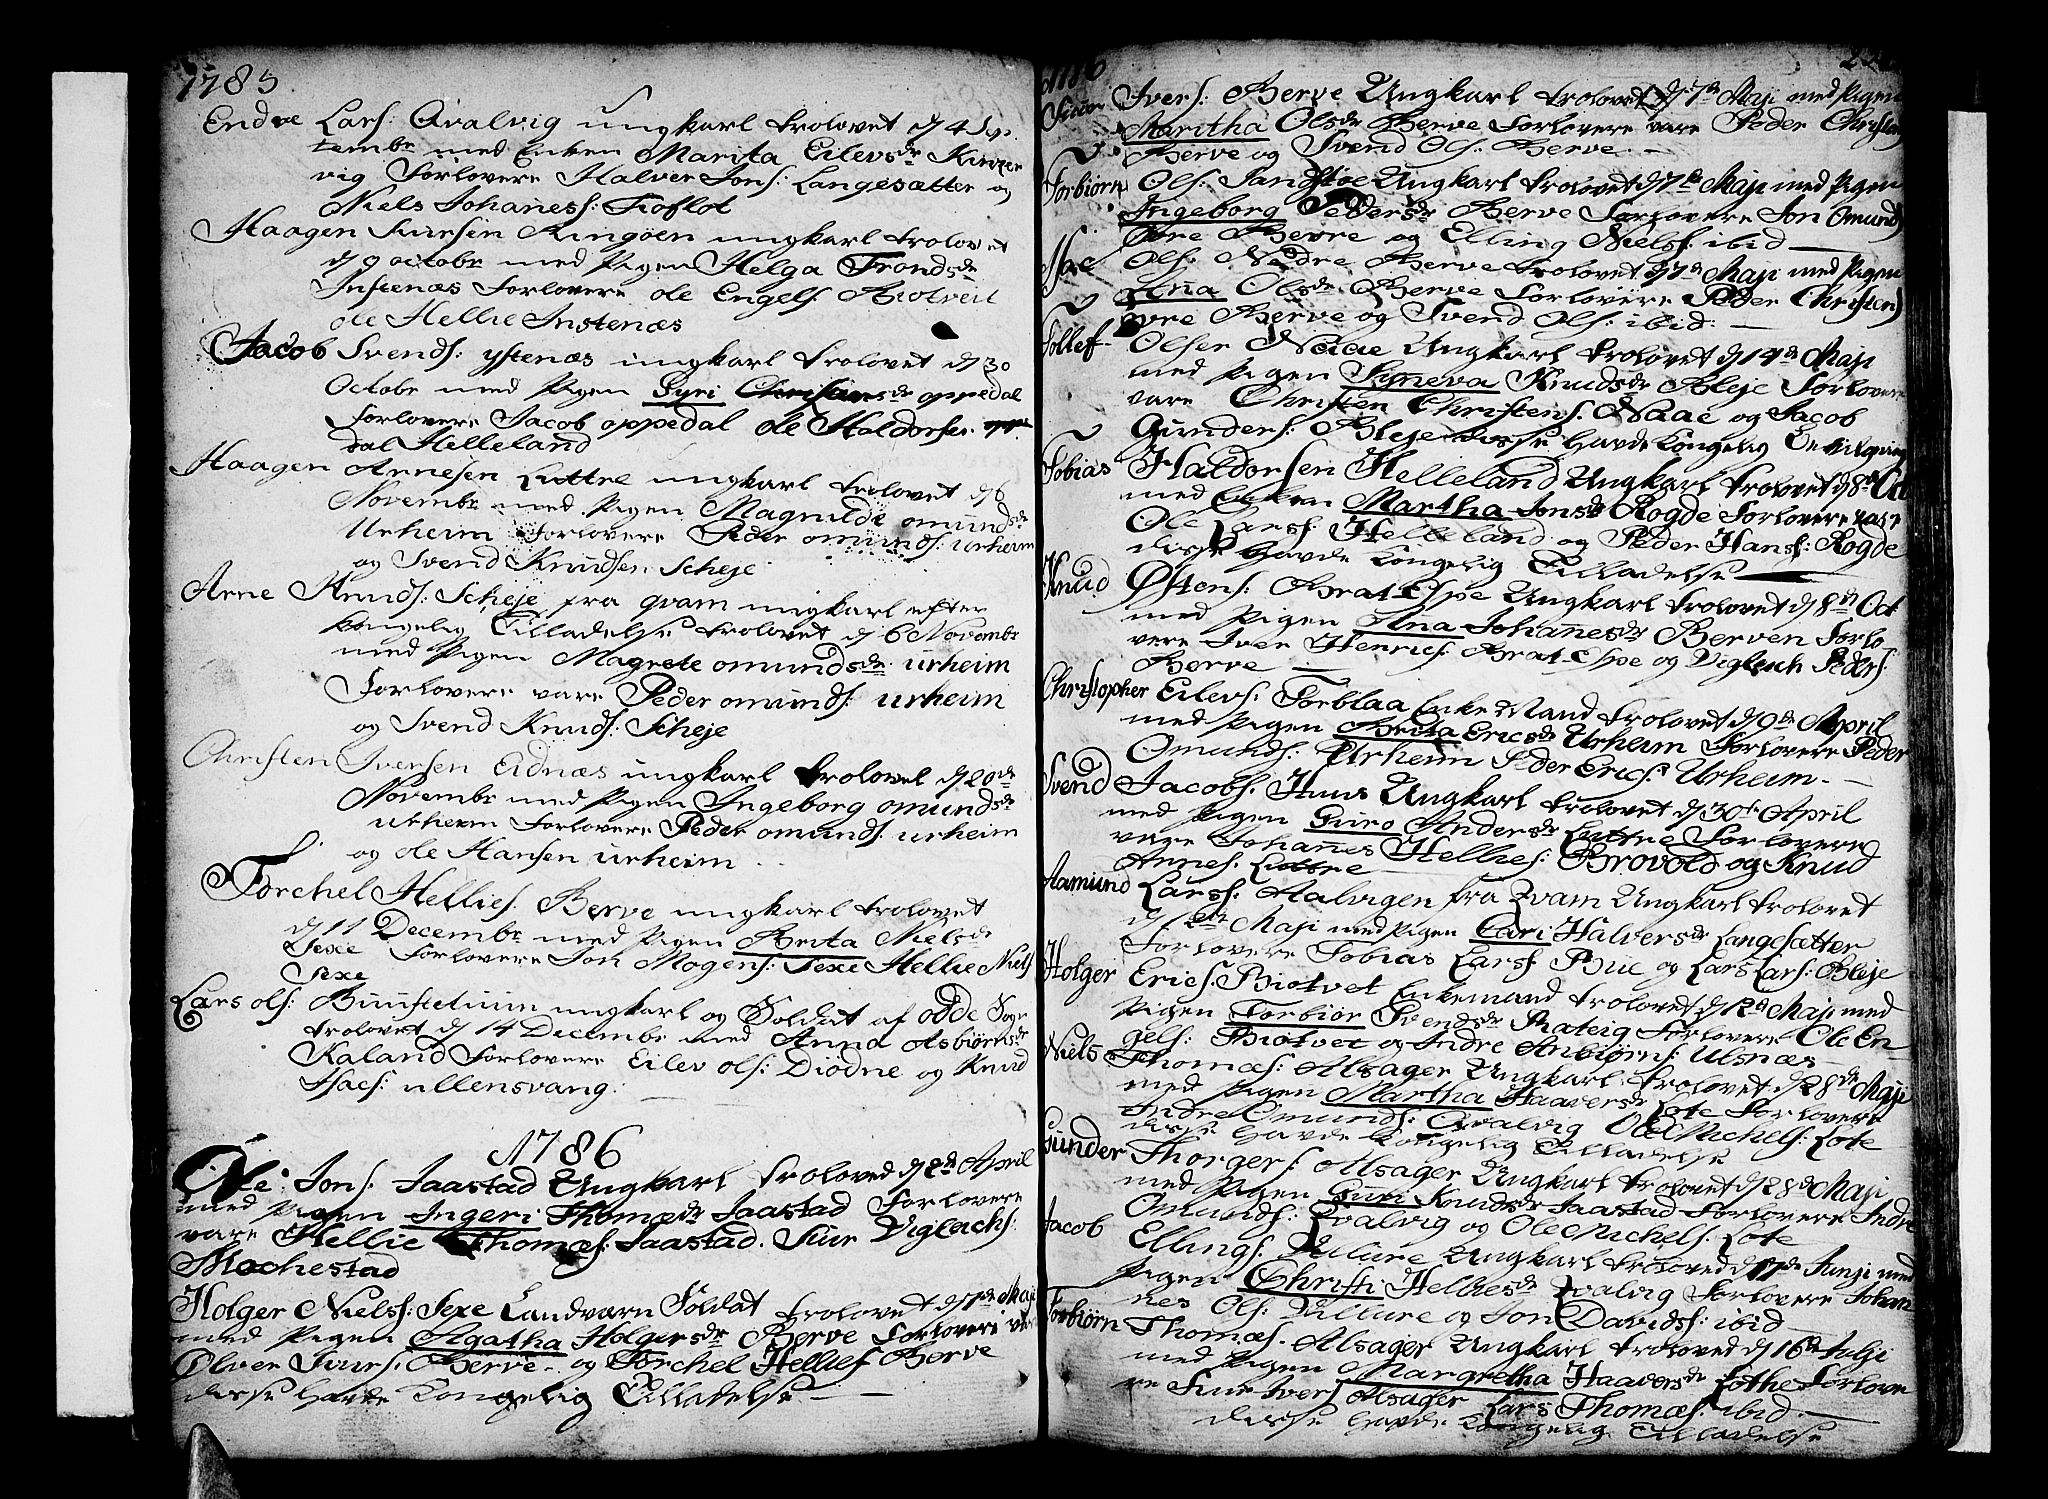 1785
Endre Lars: Qvalvig ungkarl trolovet d 4 Sep
tembr med Enken Marita Eilevsdr Kinzer
vig Forlovere Halver Jons: Langesætter og
Niels Johaness: Tioflot
Haagen Siursen Ringøen ungkarl trolovet
d 9 octobr med Pigen Helga Trondsdr
Instenæs Forlovere ole Engels Biotveit
ole Hellie Instenæs
Jacob Svends: ystenæs ungkarl trolovet d 30
Octobr med Pigen Syri Christensdr oppedal
Forlovere Jacob oppedal ole Haldorsen
Helleland
Haagen Arnesen Luttre ungkarl trolovet d 6
Novembr med Pigen Magnilde omundsdr
Urheim Forlovere Peder omunds: urheim
og Svend Knudsen Scheje
Arne Knuds: Scheje fra qvam ungkarl efter
kongelig Tilladelse trolovet d 6 Novembr
med Pigen Magrete omundsdr urheim
Forlovere vare Peder omunds: urheim
og Svend Knuds: Scheje
Christen Iversen Eidnæs ungkarl trolovet d 20de
Novembr med Pigen Ingeborg omundsdr
urheim Forlovere Peder omunds: urheim
og ole Hansen urheim
Torchel Hellies: Berve ungkarl trolovet
d 11 Decembr med Pigen Brita Nielsdr
Sexe Forlovere Jon Mogens: Sexe Hellie Niels
Sexe
Lars ols: Buustetuun ungkarl og Soldat af odde Sogn
trolovet d 14 Decembr med Anna Asbiørnsdr
Kaland Forlovere Eilev ols: Diødne og Knud
Isacs: ullensvang:
1786
Ole Jons: Jaastad Ungkarl Troloved d 2d April
med Pigen Ingeri Thomædr Jaastad Forlovere
vare Hellie Thomæs: Jaastad. Siur Viglachs:
Mochestad
Holger Niels: Sexe Landværn Soldat trolovet d 7de Maji
med Pigen Agatha Holgersdr Berve Forlovere vare
Olver Siurs: Berve. og Torchel Hellies Berve
disse havde Kongelig Tilladelse
Siur Ivers: Berve Ungkarl trolovet d 7de Maji med Pigen
Maritha Olsdr Berve Forlovere vare Peder Christens
Berve og Svend Ols: Berve.
Torbiørn Ols: Sandstøe Ungkarl trolovet d 7de Maji med Pigen
Ingeborg Pedersdr Berve Forlovere Jon Omunds
øvre Berve og Elling Niels: ibid
Isac Ols: Nedre Berve trolovet d 7de Maji med Pigen
Ana Olsdr Berve Forlovere Peder Christens
øvre Berve og Svend Ols: ibid:
Tollef Olsen Naae Ungkarl trolovet d 14de Maji
med Pigen Syneva Knudsdr Bleje Forlovere
vare Christen Christens: Naae og Jacob
Gunders: Bleje disse havde kongelig Bevilgning
Tobias Haldorsen Helleland Ungkarl trolovet d 8de Oct
med Enken Martha Jonsdr Rogde Forlovere vare
Ole Lars: Helleland og Peder Hans: Rogde
disse havde kongelig Tilladelse
Knud Østens: Brat-Espe Ungkarl trolovet d 8de Oct
med Pigen Ana Johannesdr Berven Forlo
vere Iver Henrics: Brat-Espe og Viglech Peders:
Berve
Christopher Eilevs: Torblaa Enke Mand trolovet d 9de April
med Pigen Brita Ericsdr Urheim Forlovere Peder
Omunds: Urheim Peder Erics: Urheim.
Svend Jacobs: Huus Ungkarl trolovet d 30te April
med Pigen Guro Andersdr Luttre Forlovere
vare Johannes Hellies: Brovold og Knud
Arnes: Luttre
Aamund Lars: Aalvigen fra Qvam Ungkarl trolovet
Maji med Pigen Cari Halversdr Langesætter
Forlovere Tobias Lars: Bue og Lars Lars: Bleje
Holger Erics: Biotvet Enkemand trolovet d 12de Maji med
Pigen Torbior Svendsdr Forlovere Ole En-
gels: Biotvet og Endre Anbiørns: Ulsnæs
Niels Thomæs: Alsager Ungkarl trolovet d 28de Maji
med Pigen Martha Haaversdr Lote Forlovere
Endre Omunds: Qvalvig Ole Michels: Lote
disse havde kongelig Tilladelse
Gunder Thorgers: Alsager Ungkarl trolovet d 28de Maji
med Pigen Guri Knudsdr Jaastad Forlovere Indre
Omunds: Qvalvig og Ole Michels: Lote
Jacob Ellings: Villure Ungkarl troloved d 17de Junji med
Pigen Christi Helliesdr Qvalvig Forlovere Johan
nes Ols: Villure og Jon Davids: ibid
Torbiørn Thomæs: Alsager Ungkarl troloved d 16de Julji
med Pigen Margretha Haaversdr Lothe Forlove
re Siur Ivers Alsager Lars Thomæs: ibid.
disse havde kongelig Tilladelse